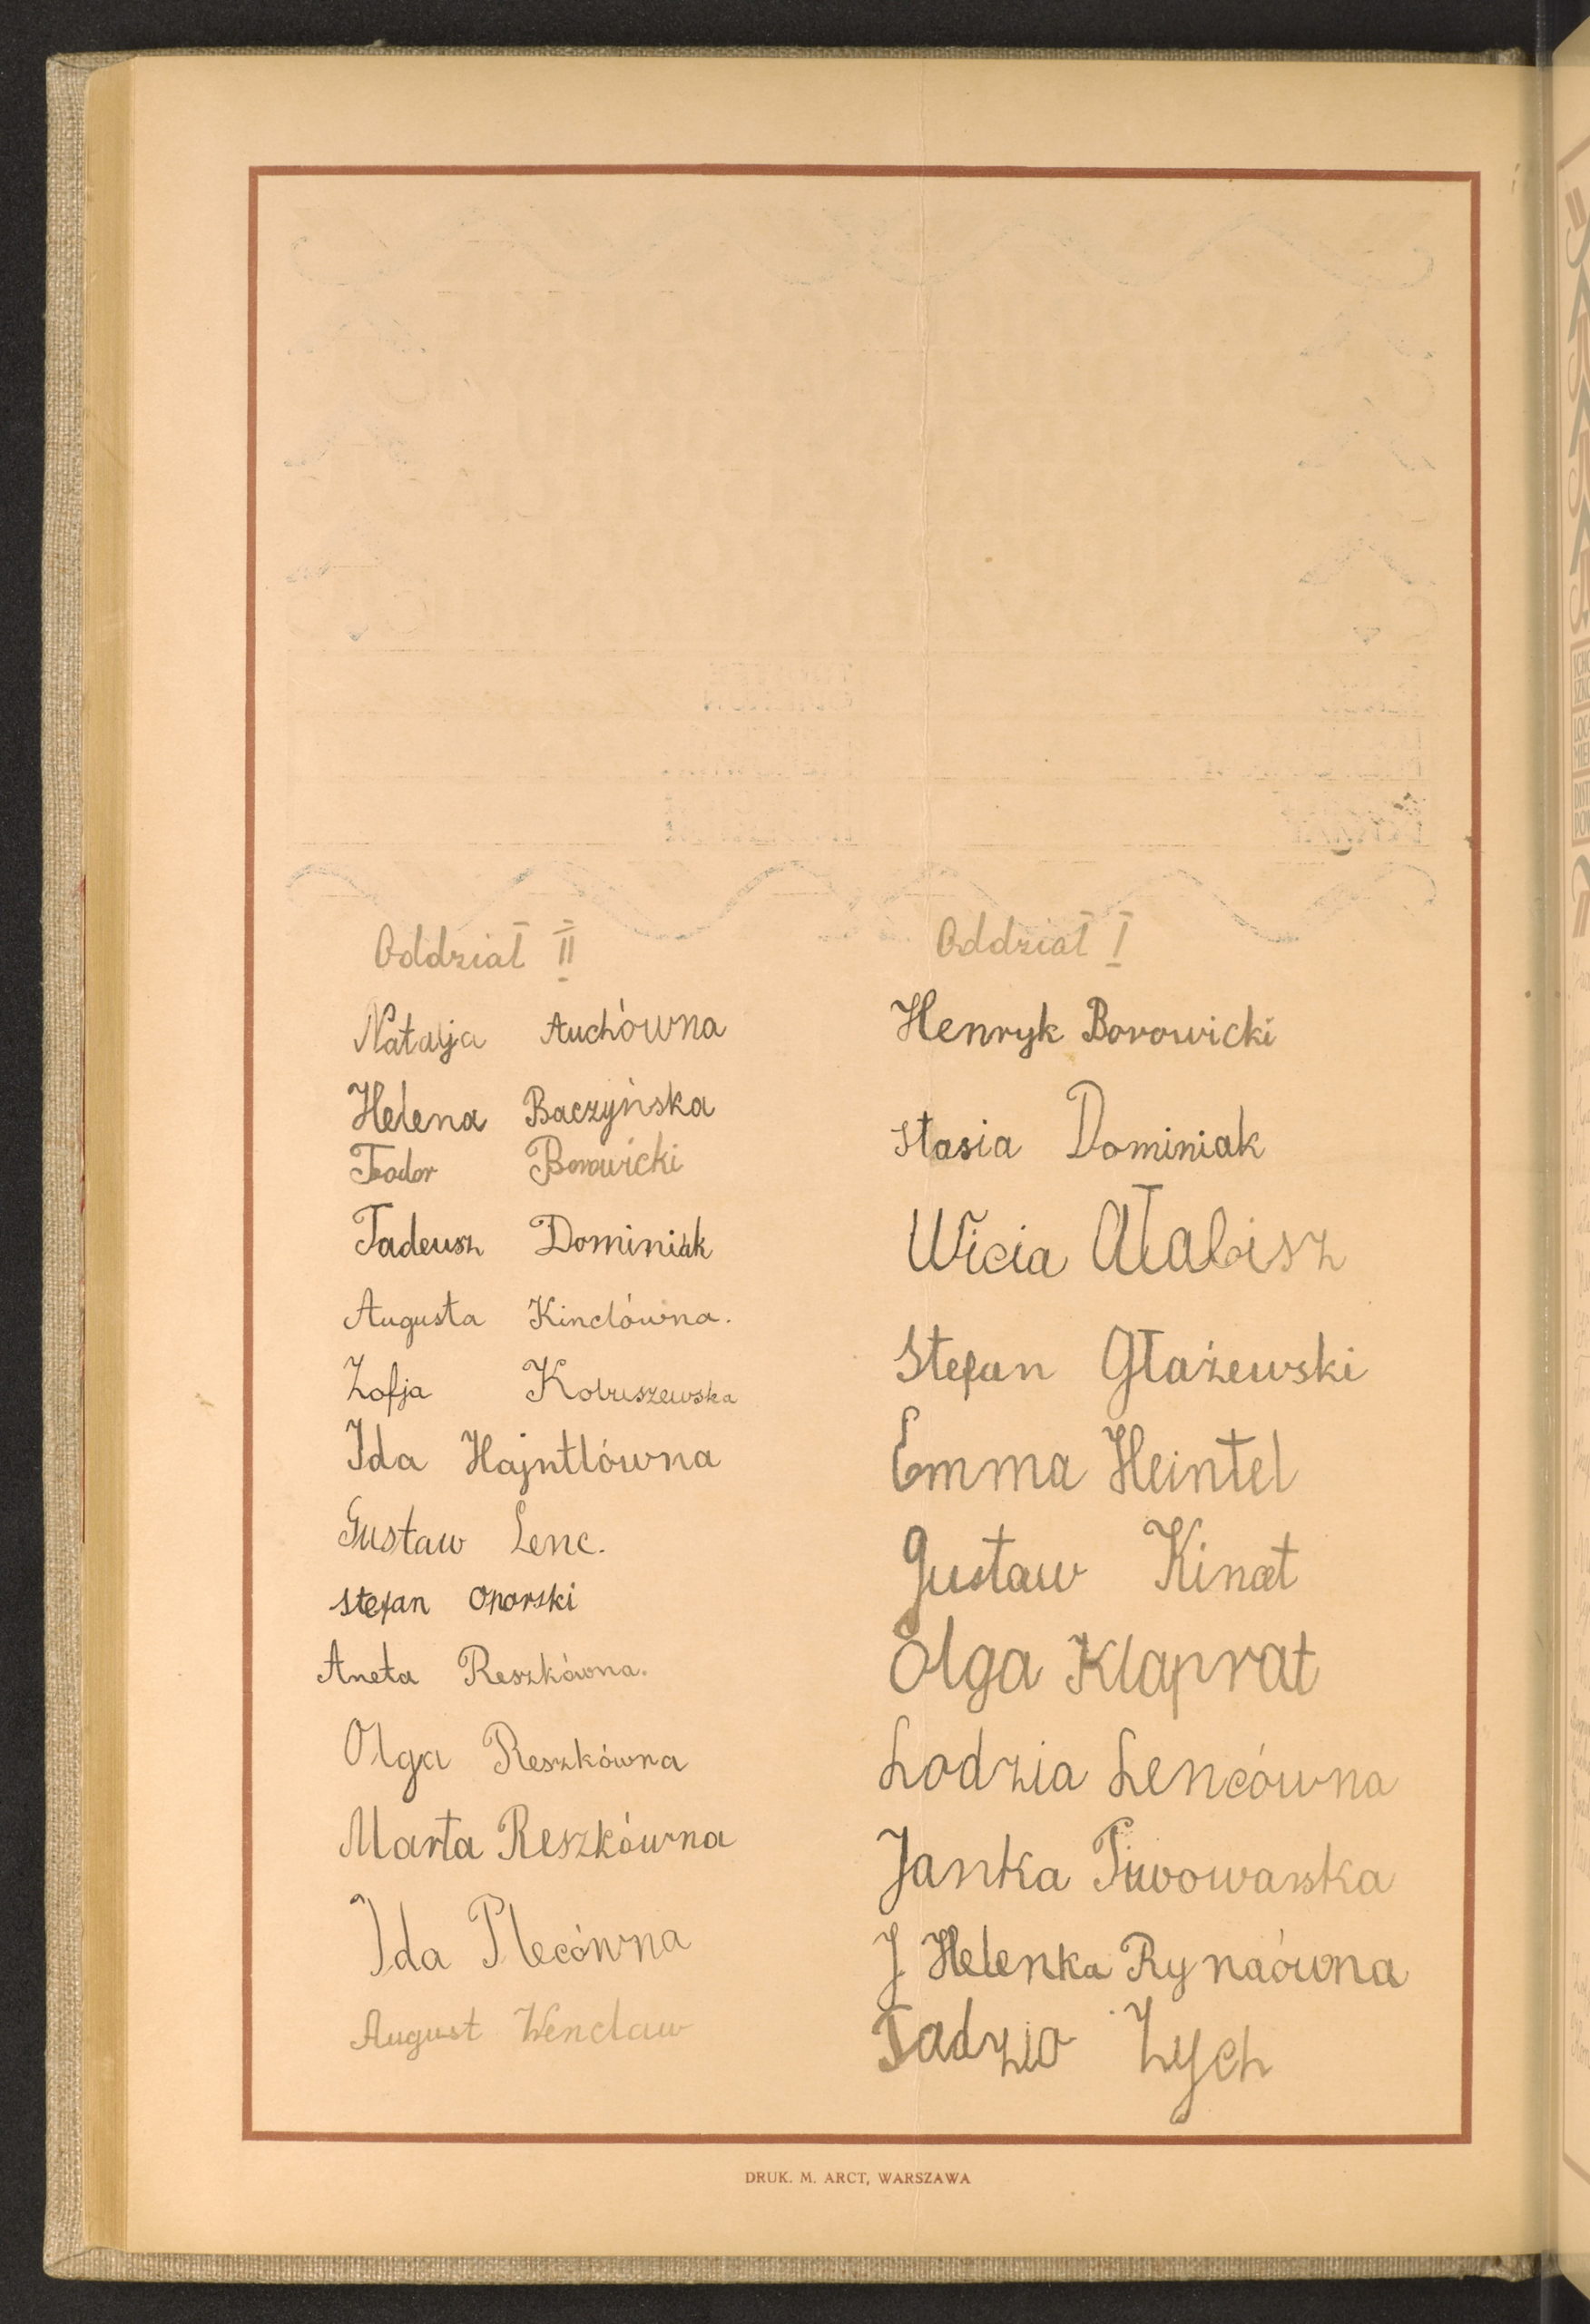 Oddział II
Natalja Auchówna
Helena Baczyńska
Teodor Borowicki
Tadeusz Dominiak
Augusta Kinclówna.
Zofja Kobuszewska
Ida Hajntlówna
Gustaw Lenc.
Stefan Oparski
Aneta Reszkówna.
Olga Reszkówna
Marta Reszkówna
Ida Plecówna
August Wenclaw
Oddział I
Henryk Borowicki
Stasia Dominiak
Wicia Ałabisz
Stefan Głażewski
Emma Heintel
Gustaw Kinat
Olga Klaprat
Lodzia Lencówna
Janka Piwowarska
J Helenka Rynaówna
Tadzio Zych
DRUK. M. ARCT, WARSZAWA